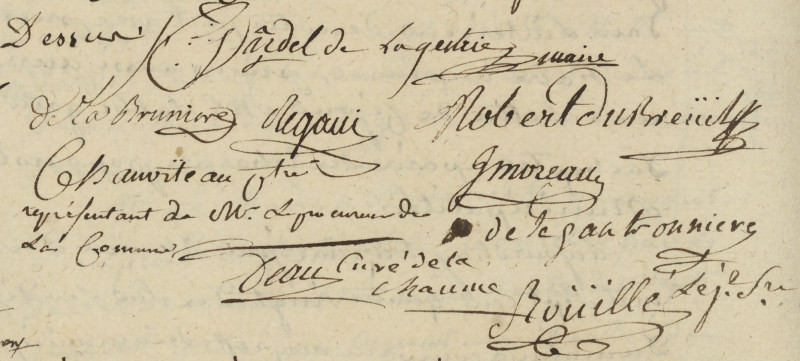 Dessus Dardel de Lagestrie maire
de la Bruniere Regain Robert duBreüil
Chauviteau ptre JMoreau
représentant de Mr. Le procureur de
La Commune
de Lezardonniere
Deau Curé de la
Chaume
Roüillé